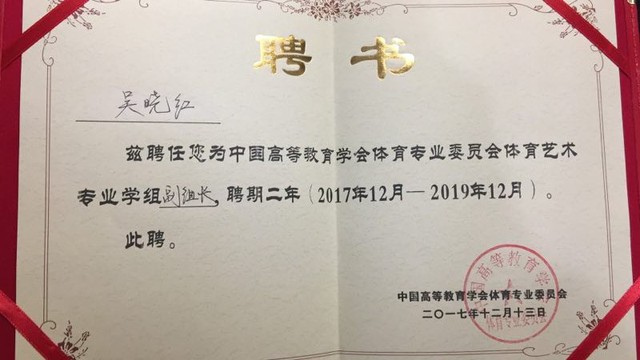 聘书
吴晓红
兹聘任您为中国高等教育学会体育专业委员会体育艺术
专业学组副组长,聘期二年(2017年12月—2019年12月)。
此聘。
中国高等教育学会体育专业委员会
二〇一七年十二月十三日
中国高等教育学会
体育专业委员会